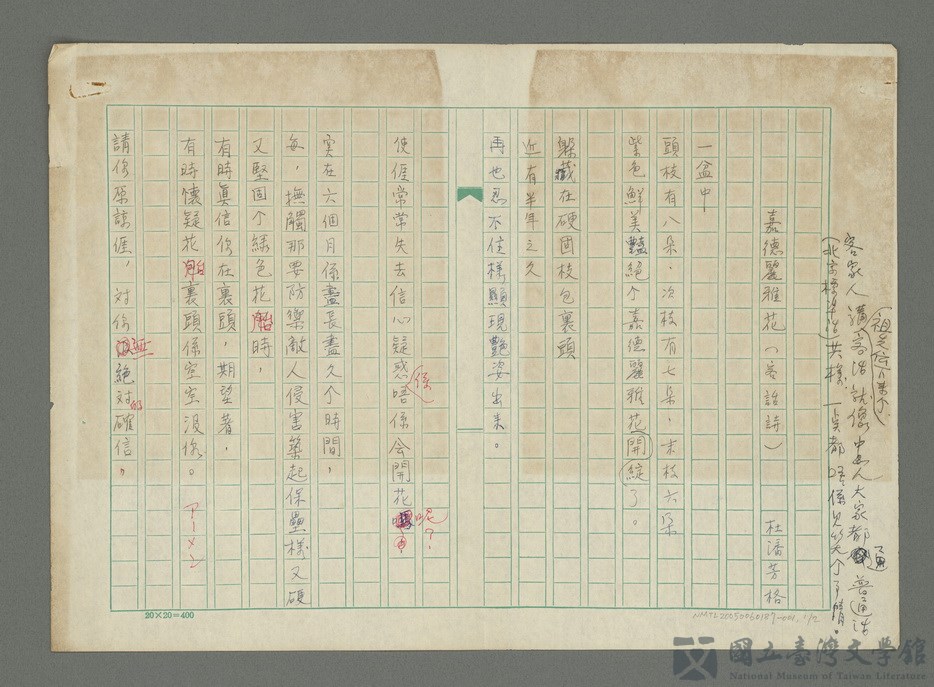 客家人講客話就像中國人大家都普通話
(祖先传下来个)
通
(北京標準話)共樣 一點都唔係見笑个事情。
嘉德麗雅花(客話詩)
杜潘芳格
一盆中
頭枝有八朵,次枝有七朵,末枝六朵
紫色鮮美豔絕个嘉德麗雅花開綻了。
躲藏在硬固枝包裏頭
近有半年之久
再也忍不住樣顯現艷姿出來。
使𠊎常常失去信心疑惑唔係会開花呢?
係
實在六個月係盡長盡久个時間,
每,撫觸那要防禦敵人侵害築起保壘樣又硬
又堅固个綠色花胎時,
有時真信你在裏頭,期望著,
有時懷疑花胞裏頭係空空没你。 アーメン
請你原諒𠊎,対你絕対的確信。
20×20=400
NMTL20050060187-001, 1/2
國立臺灣文學館
National Museum of Taiwan Literature